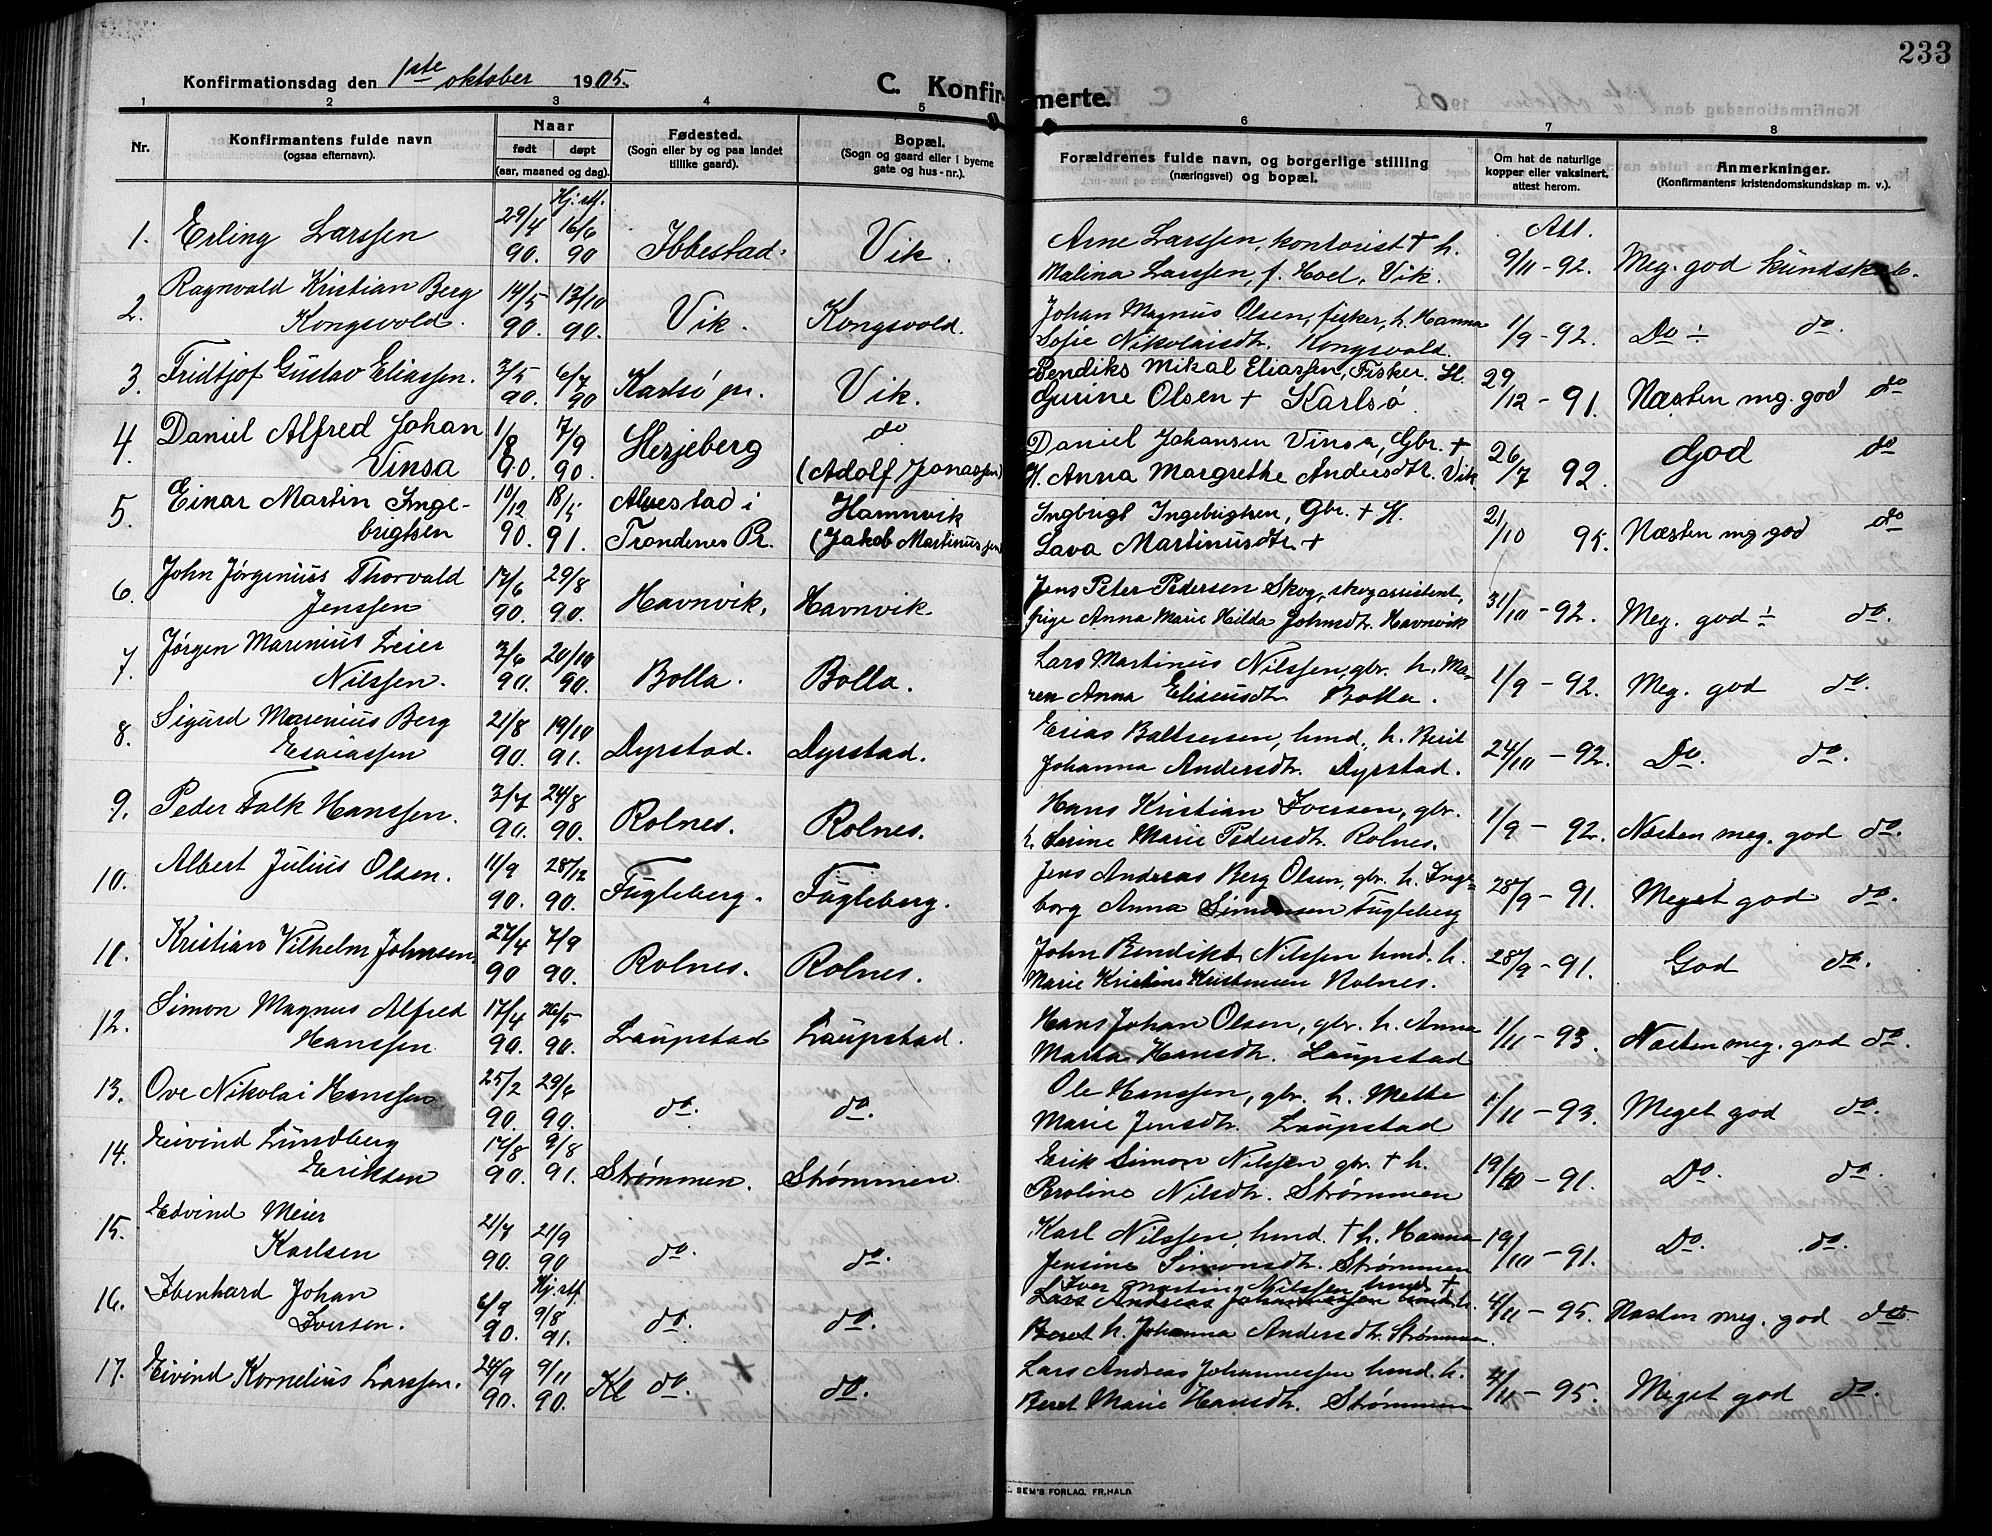 233
Konfirmationsdag den 1ste oktober 1905.
C. Konfirmerte.
1 2 3 4 5 6 7 8
Nr.
Konfirmantens fulde navn
(ogsaa efternavn).
Naar
født døpt
(aar, maaned og dag).
Fødested.
(Sogn eller by og paa landet
tillike gaard).
Bopæl.
(Sogn og gaard eller i byerne
gate og hus-nr.).
Forældrenes fulde navn, og borgerlige stilling
(næringsvei) og bopæl.
Om hat de naturlige
kopper eller vaksinert,
attest herom.
Anmerkninger.
(Konfirmantens kristendomskundskap m. v.).
1. Erling Larssen 29/4 90. Hj. st. 16/6 90 Ibbestad. Vik. Arne Larssen, kontorist + h. Att. 9/11-92. Meg. god kundskab.
Malina Larssen, f. Hoel, Vik.
2. Ragnvald Kristian Berg 14/5 90. 13/10 90. Vik. Kongsvold. Johan Magnus Olsen, fisker, h. Hanna 1/9-92. Do ÷ do.
Kongsvold. Sofie Nikolaisdtr. Kongsvold.
3. Fridtjof Gustav Eliassen. 3/5 90. 6/7 90 Karlsø pr. Vik. Bendiks Mikal Eliassen, Fisker. H. 29/12-91. Næsten mg. god do
Gurine Olsen + Karlsø.
4. Daniel Alfred Johan 1/8 90. 7/9 90. Herjeberg do Daniel Johansen Vinsa, Gbr. + 26/7 92. God do
Vinsa (Adolf Jonassen) H. Anna Margrethe Andersdtr. Vik
5. Einar Martin Inge- 10/12 90. 18/5 91. Alvestad i Hamnvik Ingbrigt Ingebrigtsen, Gbr. + H. 21/10 95. Næsten mg god do
brigtsen Trondenes Pr. (Jakob Martinussen) Lava Martinusdtr. +
6. John Jørgenius Thorvald 17/6 90. 29/8 90. Havnvik. Havnvik. Jens Peter Pedersen Skog, skogassistent, 31/10-92. Meg. god ÷ do.
Jenssen pige Anna Marie Hilda Johnsdtr. Havnvik
7. Jørgen Marenius Leier 3/6 90. 20/10 90. Bolla. Bolla. Lars Martinus Nilssen, gbr. h. Ma- 1/9-92. Meg. god do.
Nilssen. ren Anna Eliseusdtr Bolla.
8. Sigurd Marenius Berg 21/8 90. 19/10 91. Dyrstad. Dyrstad. Esias Baltsersen, hmd., h. Berit 24/10-92. Do. do.
Esaiassen Johanna Andersdtr. Dyrstad.
9. Peder Falk Hanssen. 3/7 90. 24/8 90. Rolnes. Rolnes. Hans Kristian Iversen, gbr. 1/9-92. Næsten meg. god do.
h. Serine Marie Pedersdtr. Rolnes.
10. Albert Julius Olsen. 11/9 90. 28/12 90. Fugleberg. Fugleberg. Jens Andreas Berg Olsen, gbr. h. Inge- 28/9-91. Meget god do.
borg Anna Simonsen Fugleberg
11. Kristian Vilhelm Johnsen. 27/4 90 7/9 90. Rolnes. Rolnes. John Bendikt Nilssen hmd. h. 28/9-91. God do.
Marie Kristine Kristensen Rolnes.
12. Simon Magnus Alfred 17/4 90. 26/5 90. Laupstad Laupstad. Hans Johan Olsen, gbr. h. Anna 1/11-93. Næsten meg. god do.
Hanssen Marta Hansdtr. Laupstad
13. Ove Nikolai Hanssen 25/2 90. 29/6 90. do. do. Ole Hanssen, gbr. h. Mette 1/11-93. Meget god do.
Marie Jensdtr. Laupstad
14. Eivind Lundberg 17/8 90. 9/8 91. Strømmen. Strømmen Erik Simon Nilssen gbr. + h. 19/10-91. Do. do.
Eriksen Broline Nilsdtr. Strømmen
15. Edvind Meier 21/7 90. 21/9 90 do. do. Karl Nilssen, hmd. + h. Hanna 19/10-91. Do. do.
Karlsen Jensine Simonsdtr. Strømmen
16. Ibenhard Johan 6/9 90. Hj. st. 9/8 91. do. do. Iver Martin Nilssen hmd. + 4/11-95. Næsten meg. god do.
Iversen. Lars Andreas Johannessen hmd. h.
Beret h. Johanna Andersdtr. Strømmen
17. Eivind Kornelius Larssen. 24/9 90. 9/11 90. Kl do. + do. Lars Andreas Johannessen hmd. h. 4/11-95. Meget god do.
Beret Marie Hansdtr. Strømmen
SEM'S FORLAG, FR.HALD.